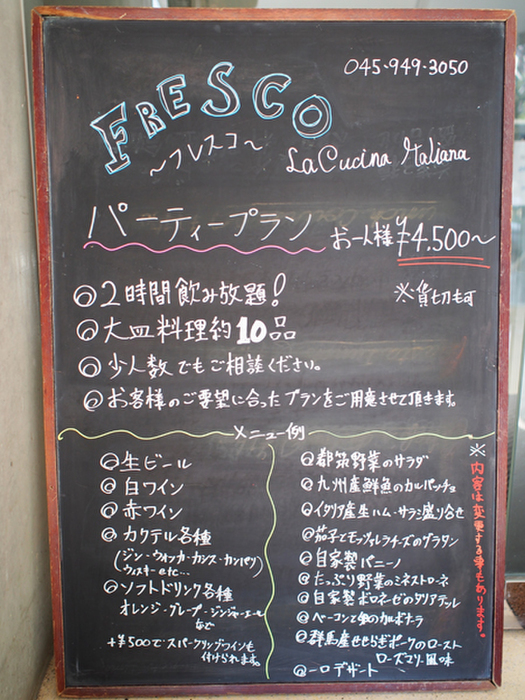 045-949-3050
FRESCO
～フレスコ～
La Cucina Italiana
パーティープラン
お一人様¥4.500～
◎2時間飲み放題!
※貸切も可
◎大皿料理約10品
◎少人数でもご相談ください。
◎お客様のご要望に合ったプランをご用意させて頂きます。
メニュー例
◎生ビール
◎白ワイン
◎赤ワイン
◎カクテル各種
(ジン・ウォッカ・カシス・カンパリ)
ウィスキーetc...
◎ソフトドリンク各種
オレンジ・グレープ・ジンジャーエール
など
+¥500でスパークリングワインも
付けられます。
◎都筑野菜のサラダ
◎九州産鮮魚のカルパッチョ
◎イタリア産生ハム・サラミ盛り合せ
◎茄子とモッツァレラチーズのグラタン
◎自家製パニーノ
◎たっぷり野菜のミネストローネ
◎自家製ボロネーゼのタリアテッレ
◎ベーコンと卵のカルボナーラ
◎群馬産せせらぎポークのロースト
ローズマリー風味
◎一口デザート
※内容は変更する事もあります。